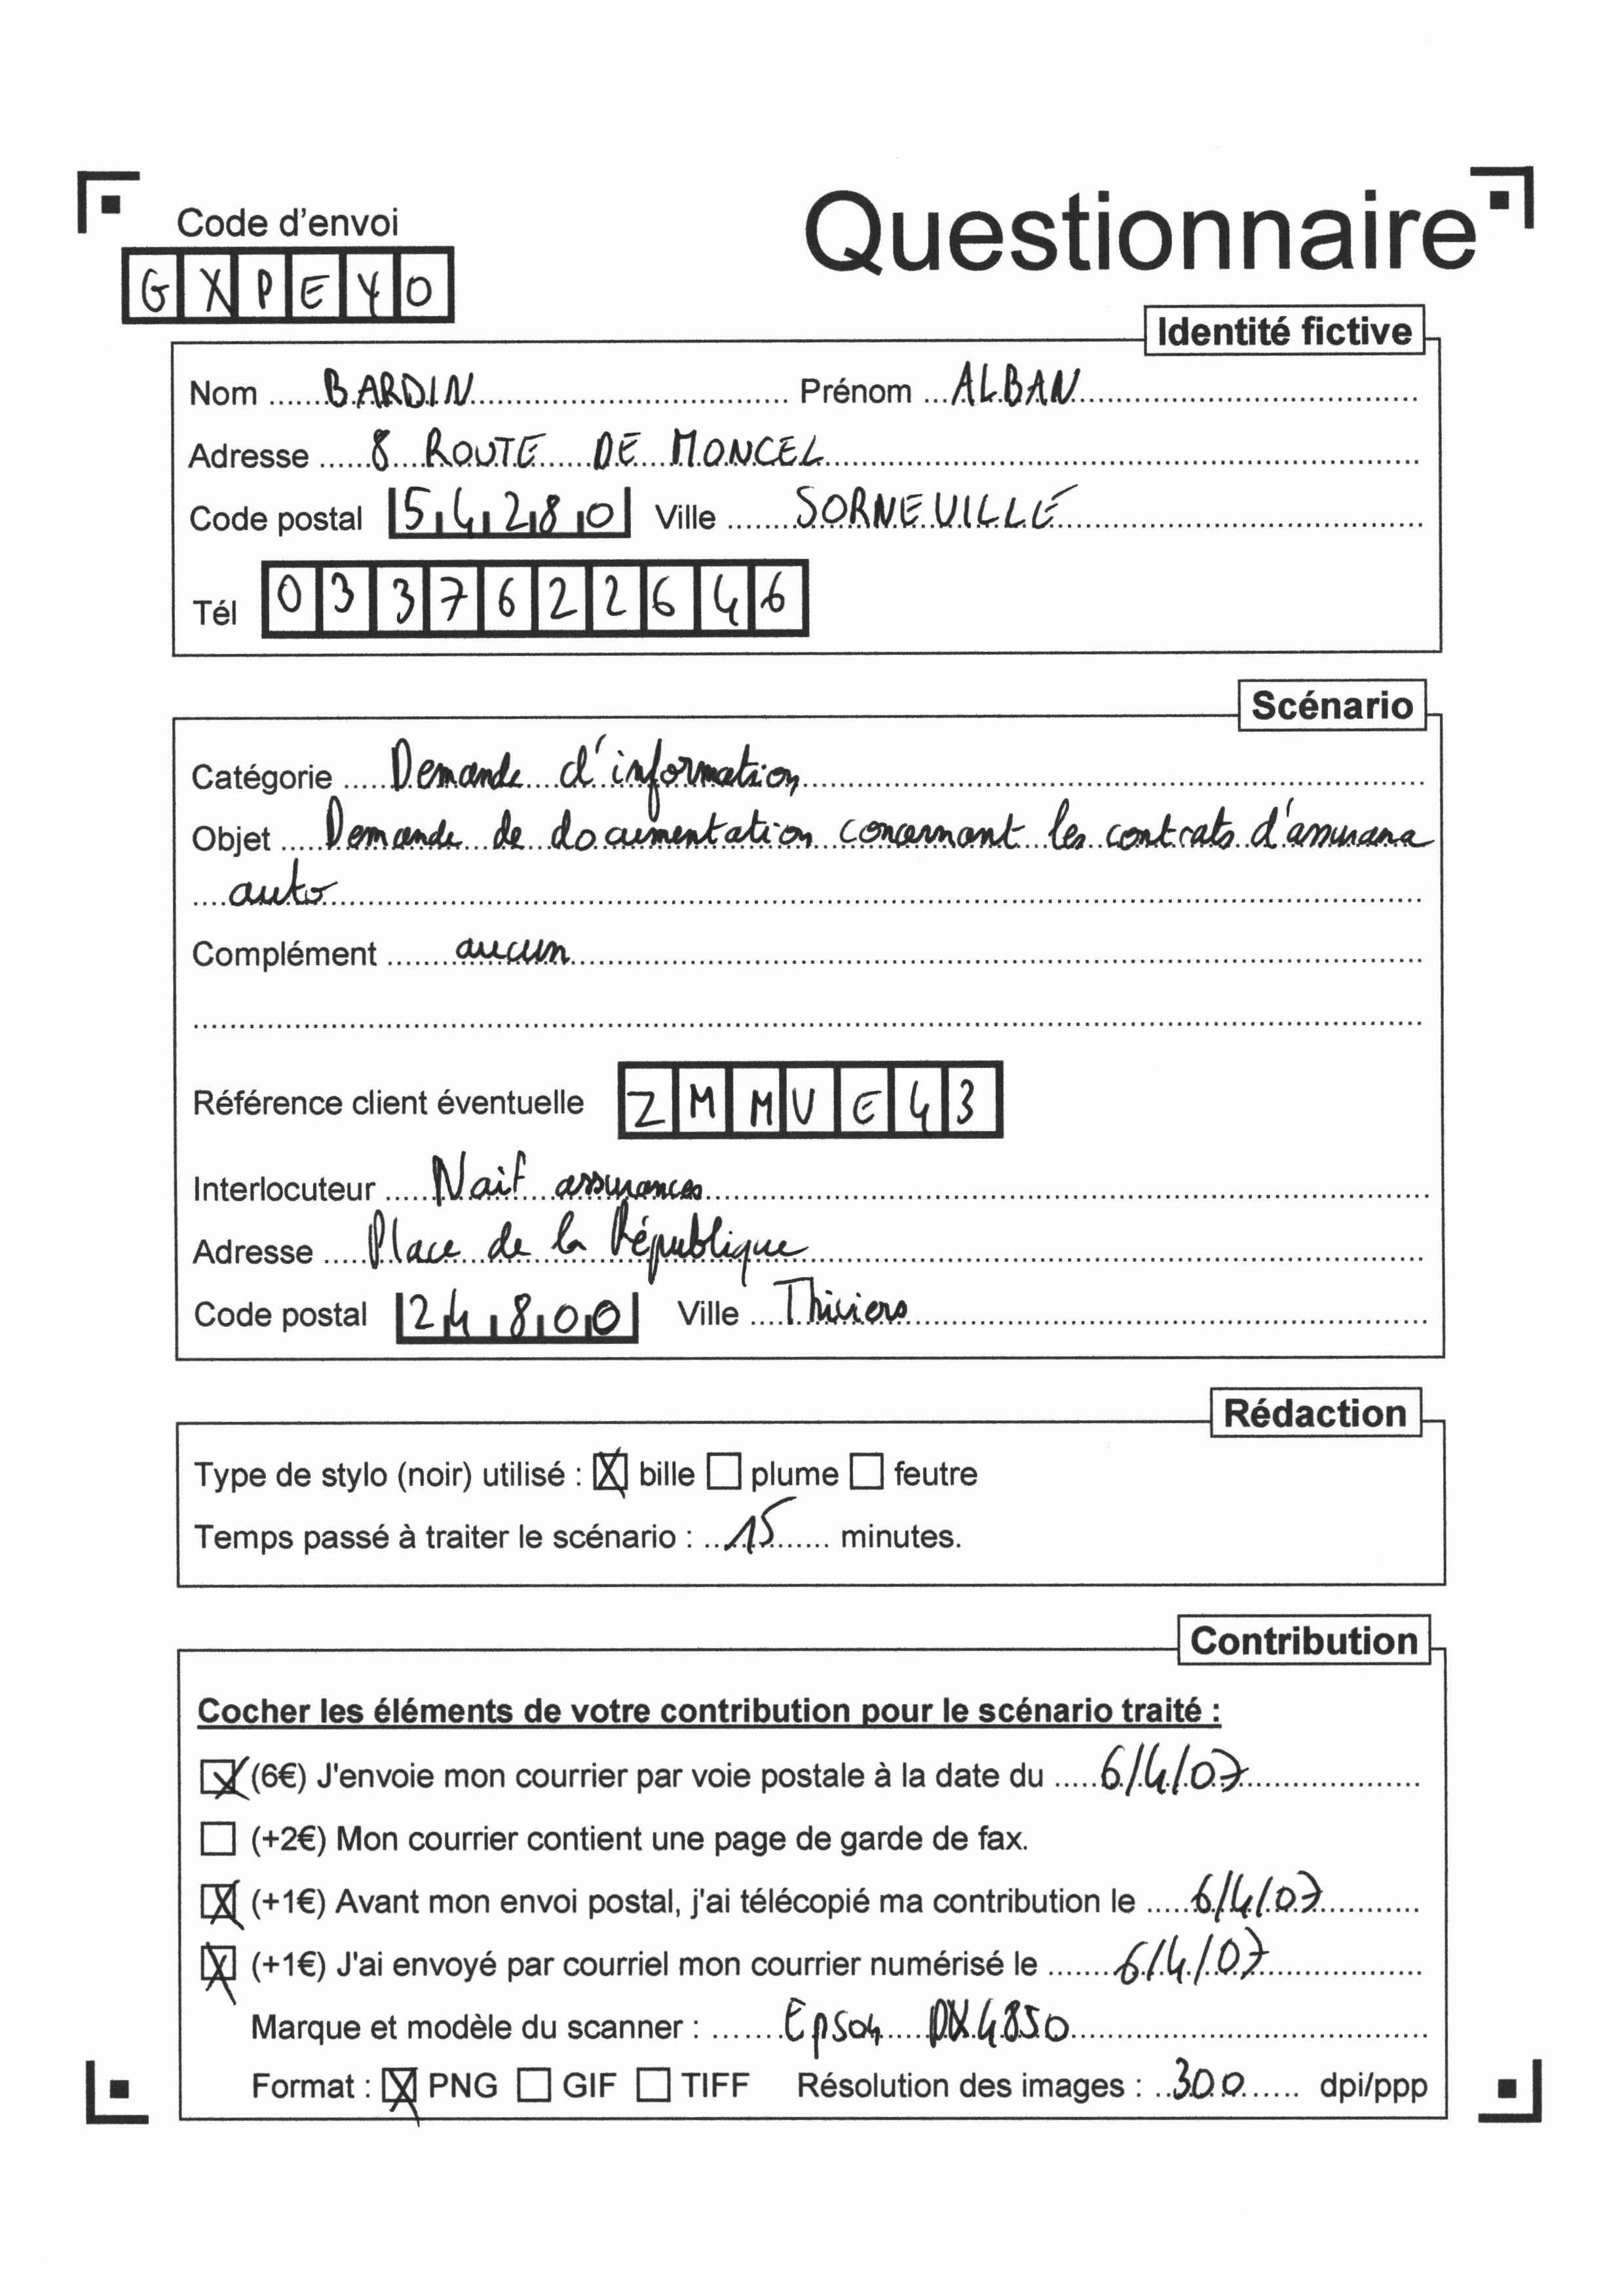 Questionnaire
Code d'envoi
GXPEYO
Identité fictive
Nom ...... BARDIN ...... Prénom ... ALBAN ......
Adresse ...... 8 ROUTE DE MONCEL ......
Code postal 54280 Ville ....... SORNEVILLE ......
Tél 0337622646
Scénario
Catégorie ..... Demande d'information ......
Objet ..... Demande de documentation concernant les contrats d'assurance
.... auto ......
Complément ....... aucun ......
Référence client éventuelle ZMMVE43
Interlocuteur ..... Nait assurances ......
Adresse ..... Place de la République ......
Code postal 24800 Ville .... Thiviers ......
Rédaction
Type de stylo (noir) utilisé : ☒ bille ☐ plume ☐ feutre
Temps passé à traiter le scénario : .. 15 ...... minutes.
Contribution
Cocher les éléments de votre contribution pour le scénario traité :
☒ (6€) J'envoie mon courrier par voie postale à la date du ..... 6/4/07 ......
☐ (+2€) Mon courrier contient une page de garde de fax.
☒ (+1€) Avant mon envoi postal, j'ai télécopié ma contribution le ..... 6/4/07 ......
☒ (+1€) J'ai envoyé par courriel mon courrier numérisé le ....... 6/4/07 ......
Marque et modèle du scanner : ....... Epson DX4850 ......
Format : ☒ PNG ☐ GIF ☐ TIFF Résolution des images : .. 300 ...... dpi/ppp